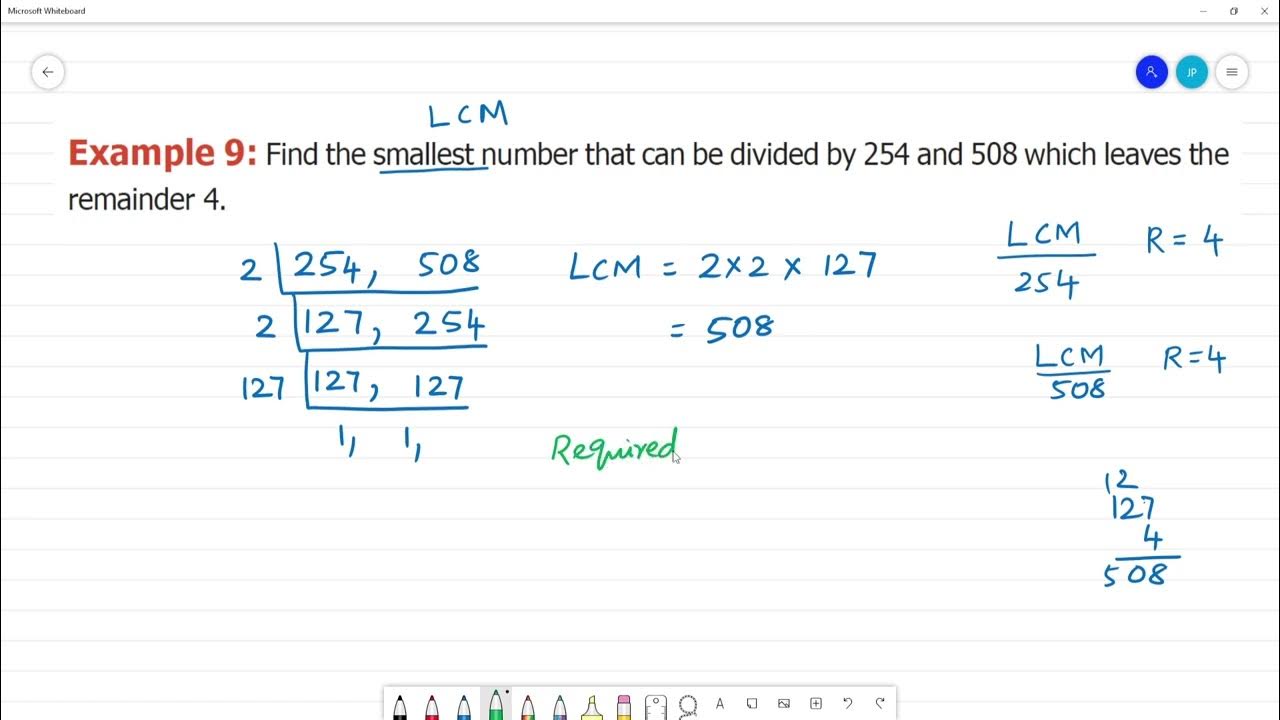 Microsoft Whiteboard
JP
LCM
Example 9: Find the smallest number that can be divided by 254 and 508 which leaves the
remainder 4.
2 254, 508
2 127, 254
127 127, 127
1, 1,
LCM = 2×2 × 127
= 508
Required
LCM R = 4
254
LCM R=4
508
12
127
4
508
A